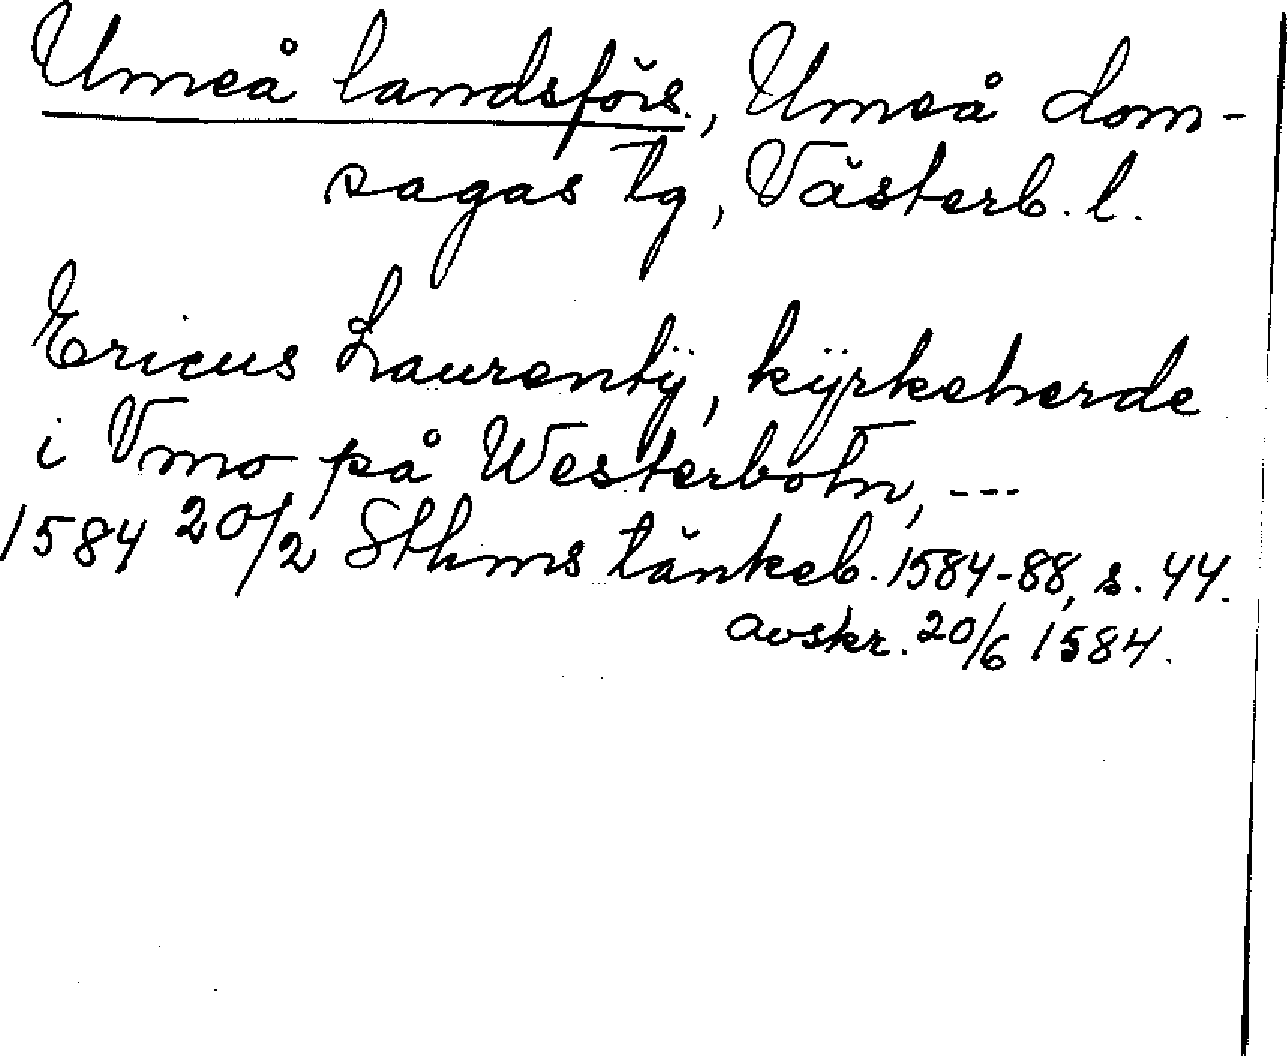 Umeå landsförs., Umeå dom-
sagas tg, Västerb. l.
Ericus Laurentÿ, kÿrkeherde
i Vmo på Westerbotn, ---
1584 20/2 Sthms tänkeb. 1584-88, s. 44.
avskr. 20/6 1584.